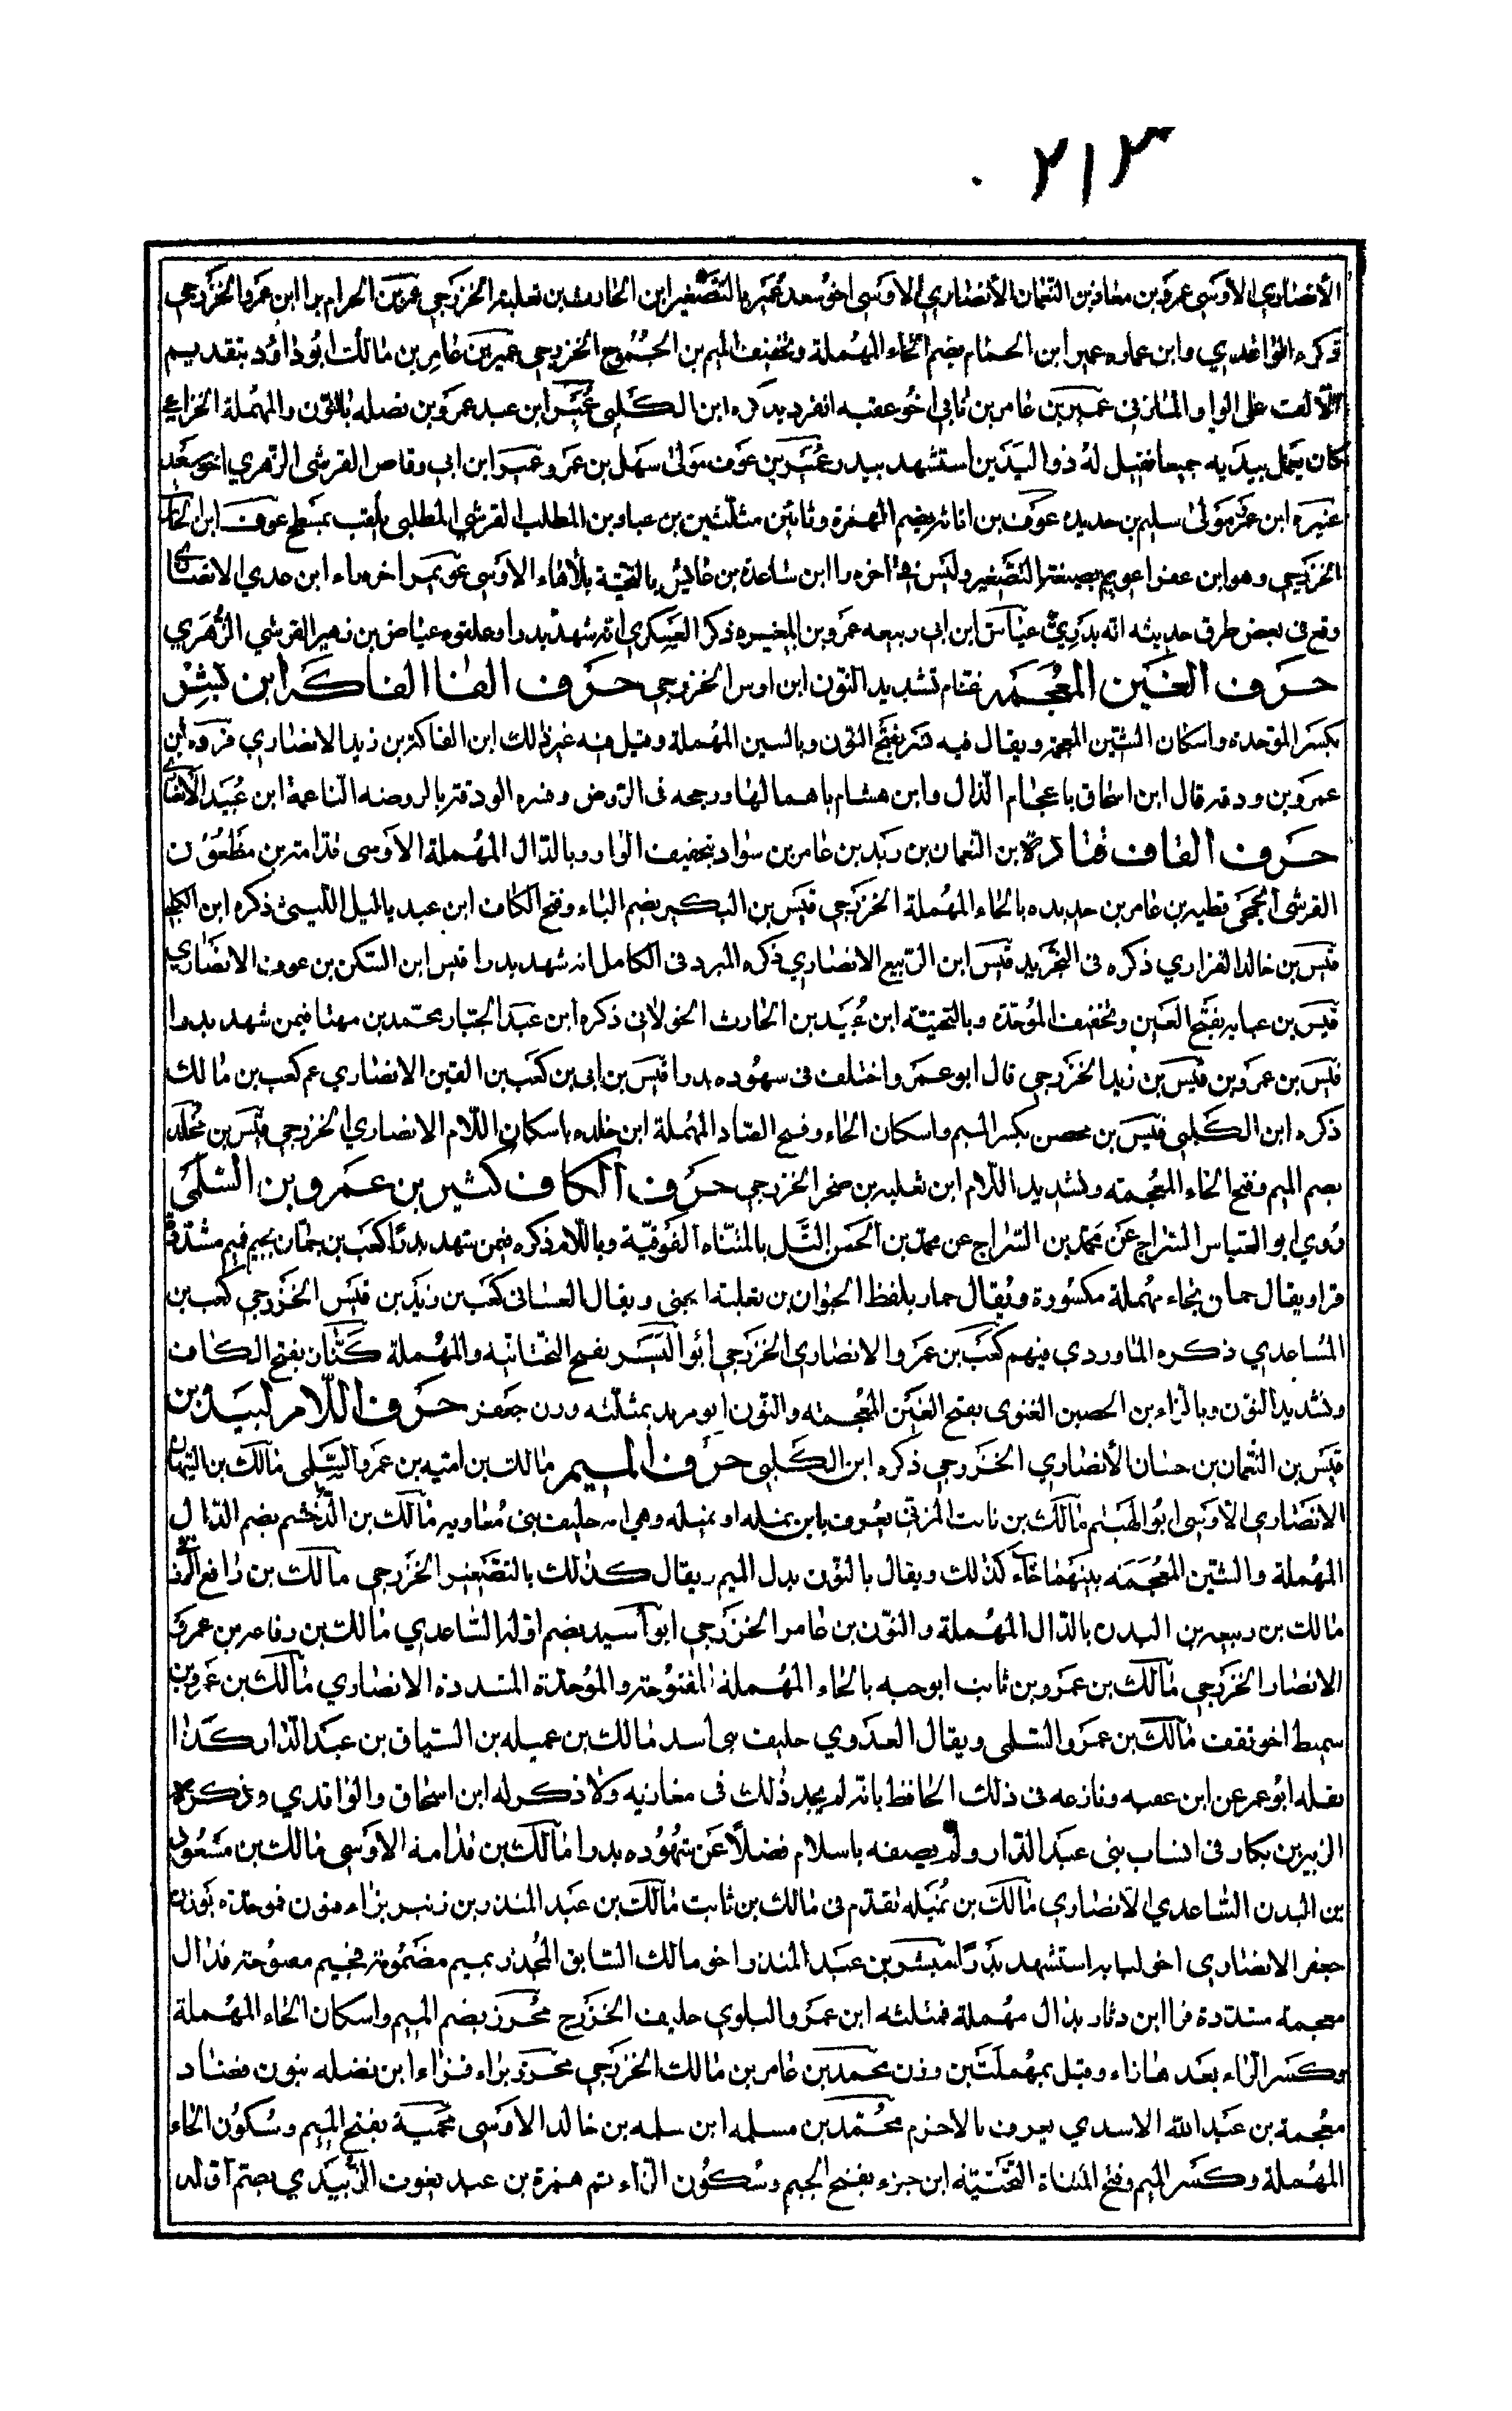 ٢١٣
الأنصاري الأوسي عمرو بن معاذ بن النعمان الأنصاري الأوسي اخو سعد عمير بالتصغير ابن الحارث بن ثعلبة الخزرجي عمير بن الحرام برا ابن عمرو الخزرجي
ذكره الواقدي وابن عماره عمير ابن الحمام بضم الحاء المهملة وتخفيف الميم بن الجموح الخزرجي عمير بن عامر بن مالك ابو داود بتقديم
الألف على الواو المازني عمير بن عامر بن نابي اخو عقبه انفرد بذكره ابن الكلبي عمير ابن عبد عمرو بن نضله بالنون والمهملة الخزاعي
كان يعمل بيديه جميعا فقيل له ذو اليدين استشهد ببدر عمير بن عوف مولى سهل بن عمرو عمير ابن ابي وقاص القرشي الزهري اخو سعد
عنيره ابن عمرو مولى سليم بن حديده عوف بن اثاثه بضم الهمزة وثائين مثلثتين بن عباد بن المطلب القرشي المطلبي يلقب بمسطح عوف ابن الحارث
الخزرجي وهو ابن عفرا عويم بصيغة التصغير وليس في اخره را ابن ساعدة بن عايش بالتحتية بلا هاء الاوسي عويمر اخره راء ابن حدي الانصاري
وقع في بعض طرق حديثه انه بدري عياش ابن ابي ربيعه عمرو بن المغيره ذكر العسكري انه شهد بدرا وغلطوه عياض بن زهير القرشي الزهري
حرف الغين المعجمه غنام بتشديد النون ابن اوس الخزرجي حرف الفا الفاكه ابن بشر
بكسر الموحدة واسكان الشين المعجمة ويقال فيه نسر بفتح النون وبالسين المهملة وقيل فيه غير ذلك ابن الفاكة بن زيد الانصاري فروه ابن
عمرو بن ودقه قال ابن اسحاق باعجام الذال وابن هشام باهمالها ورجحه في الروض وفسره الودقة بالروضه الناعمة ابن عبيد الانصاري
حرف القاف قتادة ابن النعمان بن زيد بن عامر بن سواد بتخفيف الواو وبالدال المهملة الأوسي قدامة بن مظعون
القرشي الجمحي قطبه بن عامر بن حديده بالحاء المهملة الخزرجي قيس بن البكير بضم الباء وفتح الكاف ابن عبد ياليل الليثي ذكره ابن الكلبي
قيس بن خالد الفزاري ذكره في التجريد قيس ابن الربيع الانصاري ذكره المبرد في الكامل انه شهد بدرا قيس ابن السكن بن عوف الانصاري
قيس بن عبايه بفتح العين وتخفيف الموحدة وبالتحتيه ابن عبيد بن الحارث الخولاني ذكره ابن عبد الجبار محمد بن مهنا فيمن شهد بدرا
قيس بن عمرو بن قيس بن زيد الخزرجي قال ابو عمر واختلف في شهوده بدرا قيس بن ابي بن كعب بن القين الانصاري عم كعب بن مالك
ذكره ابن الكلبي قيس بن محصن بكسر الميم واسكان الحاء وفتح الصاد المهملة ابن خلده باسكان اللام الانصاري الخزرجي قيس بن مخلد
بضم الميم وفتح الخاء المعجمه وتشديد اللام ابن ثعلبه بن صخر الخزرجي حرف الكاف كثير بن عمرو بن السلمي
روي ابو العباس السراج عن محمد بن السراج عن محمد بن الحسن التل بالمثناه الفوقية وباللام ذكره فيمن شهد بدرا كعب بن جمان بجيم فميم مشددة
فرا ويقال حمان بحاء مهملة مكسورة ويقال حمار بلفظ الحيوان بن ثعلبة الجهني ويقال الغساني كعب بن زيد بن قيس الخزرجي كعب بن
الساعدي ذكره الماوردي فيهم كعب بن عمرو الانصاري الخزرجي أبو اليسر بفتح التحتانيه والمهملة كناز بفتح الكاف
وتشديد النون وبالزاء بن الحصين الغنوي بفتح الغين المعجمه والنون ابو مرثد بمثلثه وزن جعفر حرف اللام لبيد بن
قيس بن النعمان بن حسان الأنصاري الخزرجي ذكره ابن الكلبي حرف الميم مالك بن اميه بن عمرو السلمي مالك بن التيهان
الانصاري الاوسي ابو الهيثم مالك بن ثابت المزني يعرف بابن نميله او نميله وهي امه حليف بني معاويه مالك بن الدخشم بضم الدال
المهملة والشين المعجمه بينهما خاء كذلك ويقال بالنون بدل الميم ويقال كذلك بالتصغير الخزرجي مالك بن رافع الزرقي
مالك بن ربيعه بن البدن بالدال المهملة والنون بن عامر الخزرجي ابو أسيد بضم اوله الساعدي مالك بن رفاعه بن عمرو
الانصار الخزرجي مالك بن عمرو بن ثابت ابو حبه بالحاء المهملة المفتوحة والموحدة المشددة الانصاري مالك بن عمرو بن
سميط اخو ثقف مالك بن عمرو السلمي ويقال العدوي حليف بني أسد مالك بن عميله بن السباق بن عبد الدار كذا
نقله ابو عمر عن ابن عقبه ونازعه في ذلك الحافظ بانه لم يجد ذلك في مغازيه ولا ذكر له ابن اسحاق والواقدي وذكره
الزبير بن بكار في انساب بني عبد الدار ولم يصفه باسلام فضلا عن شهوده بدرا مالك بن قدامه الاوسي مالك بن مسعود
بن البدن الساعدي الأنصاري مالك بن نميله تقدم في مالك بن ثابت مالك بن عبد المنذر بن زنبر بزاء فنون فموحدة بوزن
جعفر الانصاري اخو لبابه استشهد بدرا مبشر بن عبد المنذر اخو مالك السابق المجذر بميم مضمومة فجيم مفتوحة فذال
معجمه مشددة فرا ابن دثار بدال مهملة فمثلثه ابن عمرو البلوي حليف الخزرج محرز بضم الميم واسكان الحاء المهملة
وكسر الراء بعدها زاء وقيل بمهملتين وزن محمد بن عامر بن مالك الخزرجي محرز براء فزاء ابن نضله بنون فضاد
معجمة بن عبد الله الاسدي يعرف بالاخرم محمد بن مسلمه ابن سلمه بن خالد الاوسي محمية بفتح الميم وسكون الحاء
المهملة وكسر الميم وفتح المثناة التحتيه ابن جزء بفتح الجيم وسكون الزاء ثم همزة بن عبد يغوث الزبيدي بضم اوله